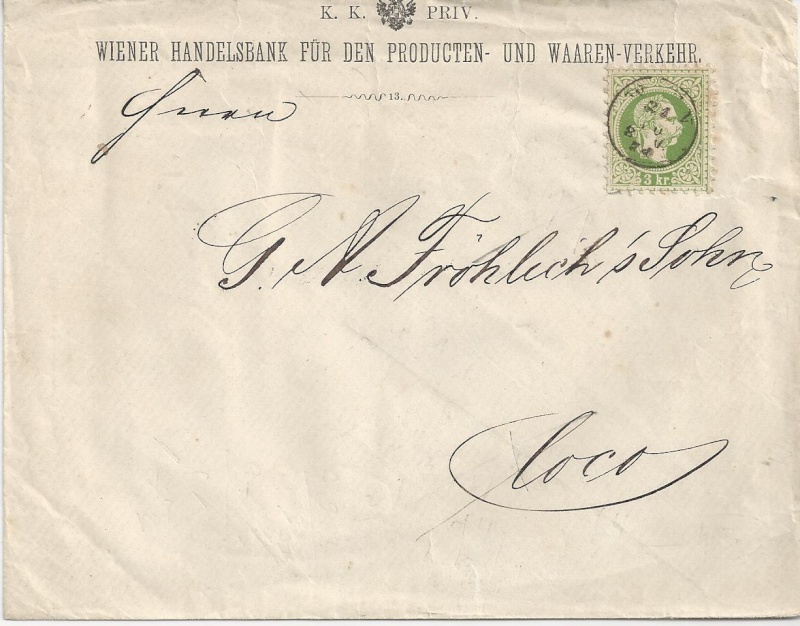 K. K. PRIV.
WIENER HANDELSBANK FÜR DEN PRODUCTEN- UND WAAREN-VERKEHR.
13.
Herrn
G. N. Fröhlich's Sohn
loco
3 kr